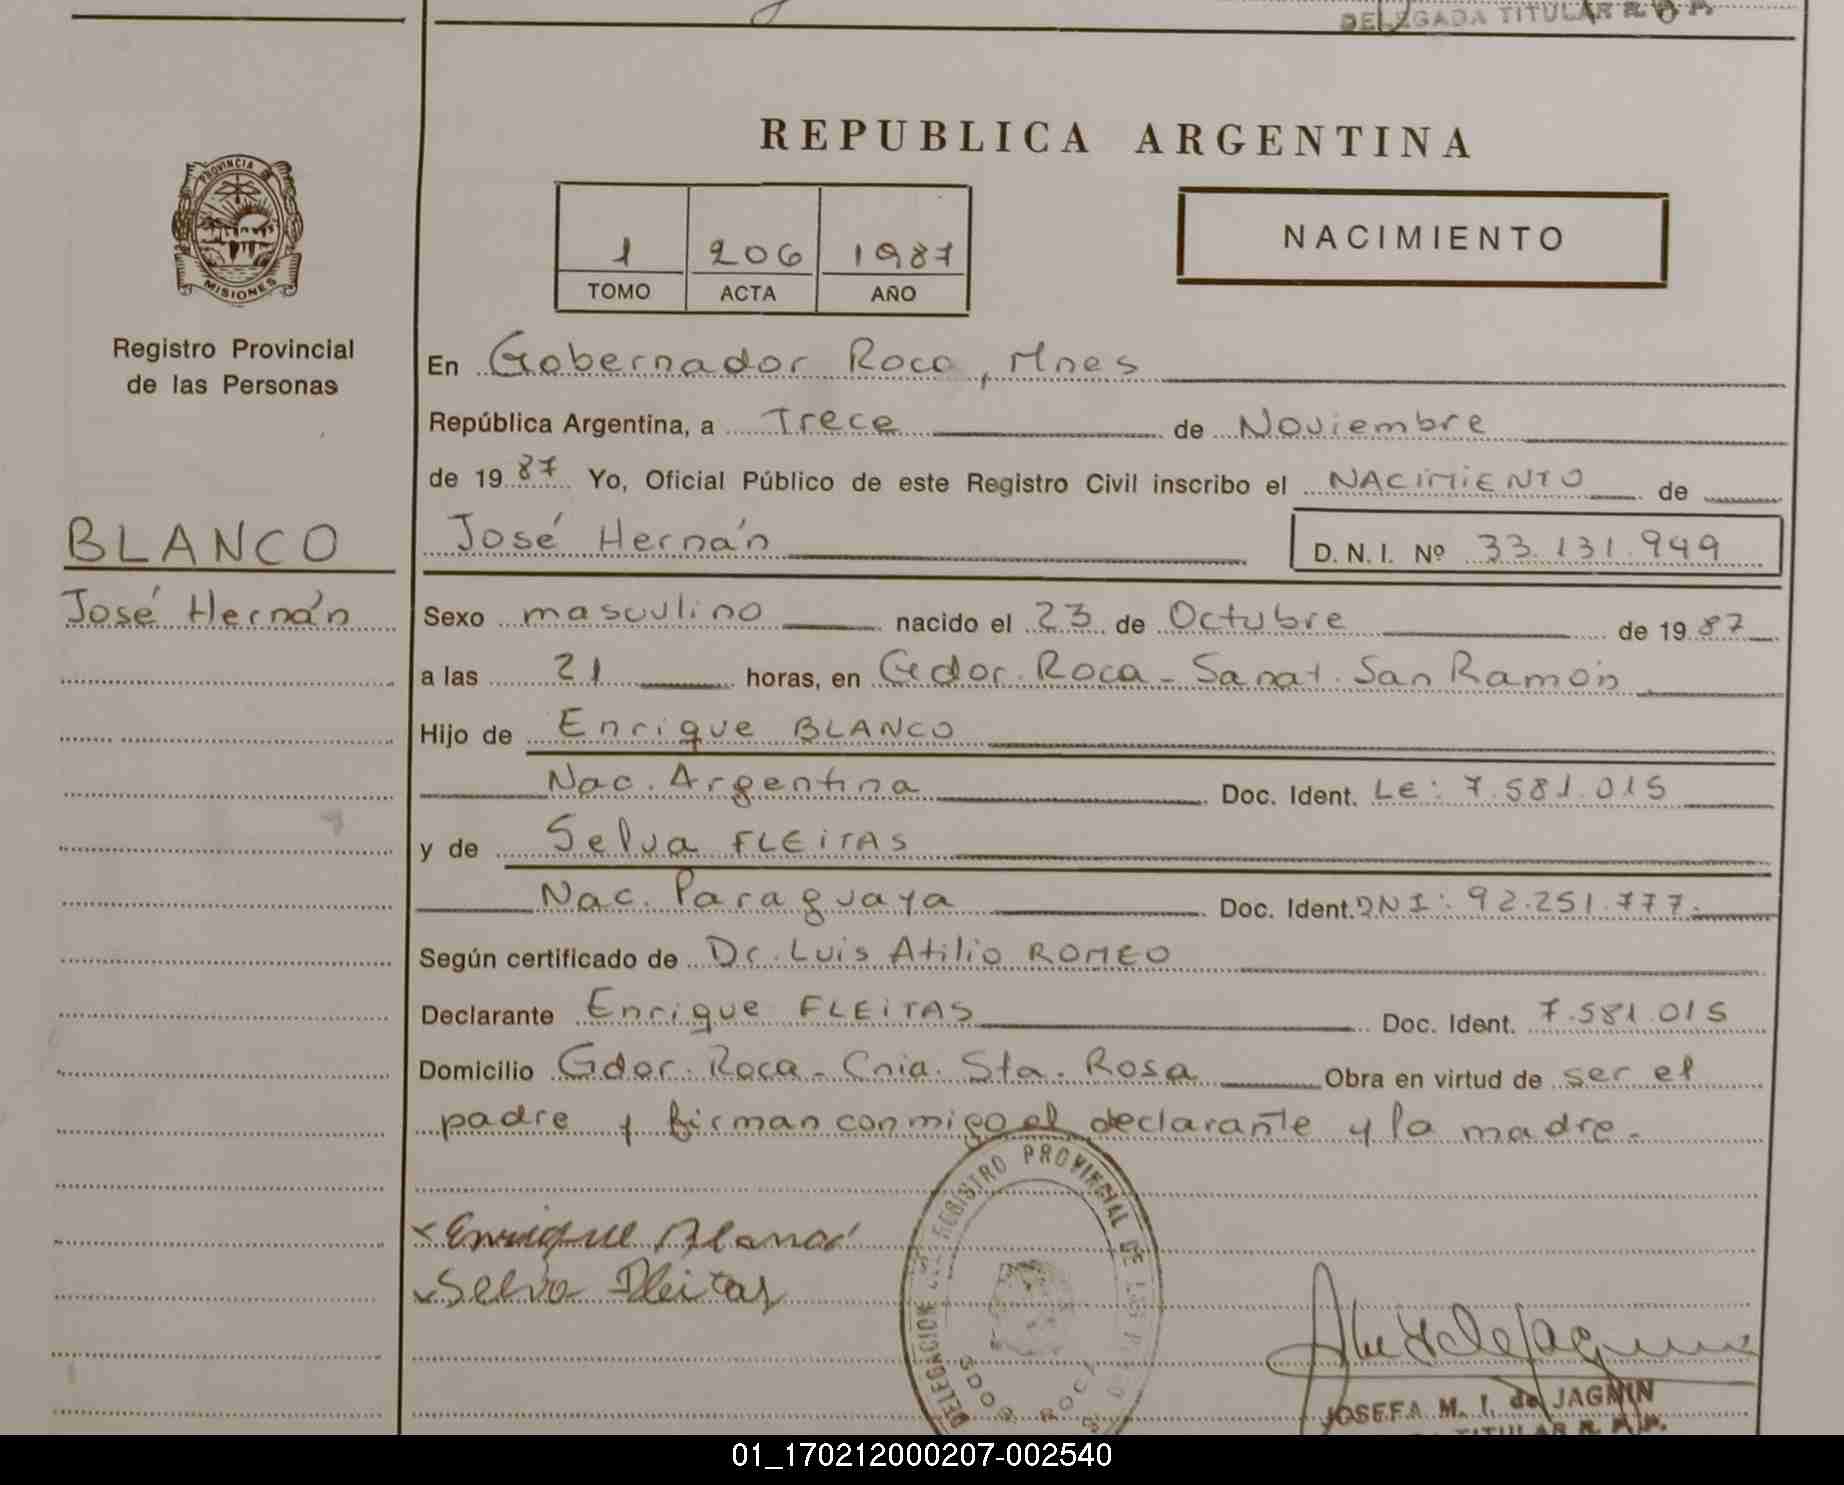 DELEGADA TITULAR R. P. P.
REPUBLICA ARGENTINA
PROVINCIA DE
MISIONES
Registro Provincial
de las Personas
1 206 1987
TOMO ACTA AÑO
NACIMIENTO
En Gobernador Roca, Mnes
República Argentina, a Trece de Noviembre
de 19 87 Yo, Oficial Público de este Registro Civil inscribo el NACIMIENTO de
José Hernán D. N. I. Nº 33.131.949
BLANCO
José Hernán
Sexo masculino nacido el 23 de Octubre de 19 87
a las 21 horas, en Gdor. Roca - Sanat. San Ramón
Hijo de Enrique BLANCO
Nac. Argentina Doc. Ident. LE: 7.581.015
y de Selva FLEITAS
Nac. Paraguaya Doc. Ident. DNI: 92.251.777.
Según certificado de Dr. Luis Atilio ROMEO
Declarante Enrique FLEITAS Doc. Ident. 7.581.015
Domicilio Gdor. Roca - Cnia. Sta. Rosa Obra en virtud de ser el
padre y firman conmigo el declarante y la madre.
Enrique Blanco
Selva Fleitas
DELEGACION DEL REGISTRO PROVINCIAL DE LAS
GDOR. ROCA
JOSEFA M. I. de JAGMIN
TITULAR R. P. P.
01_170212000207-002540